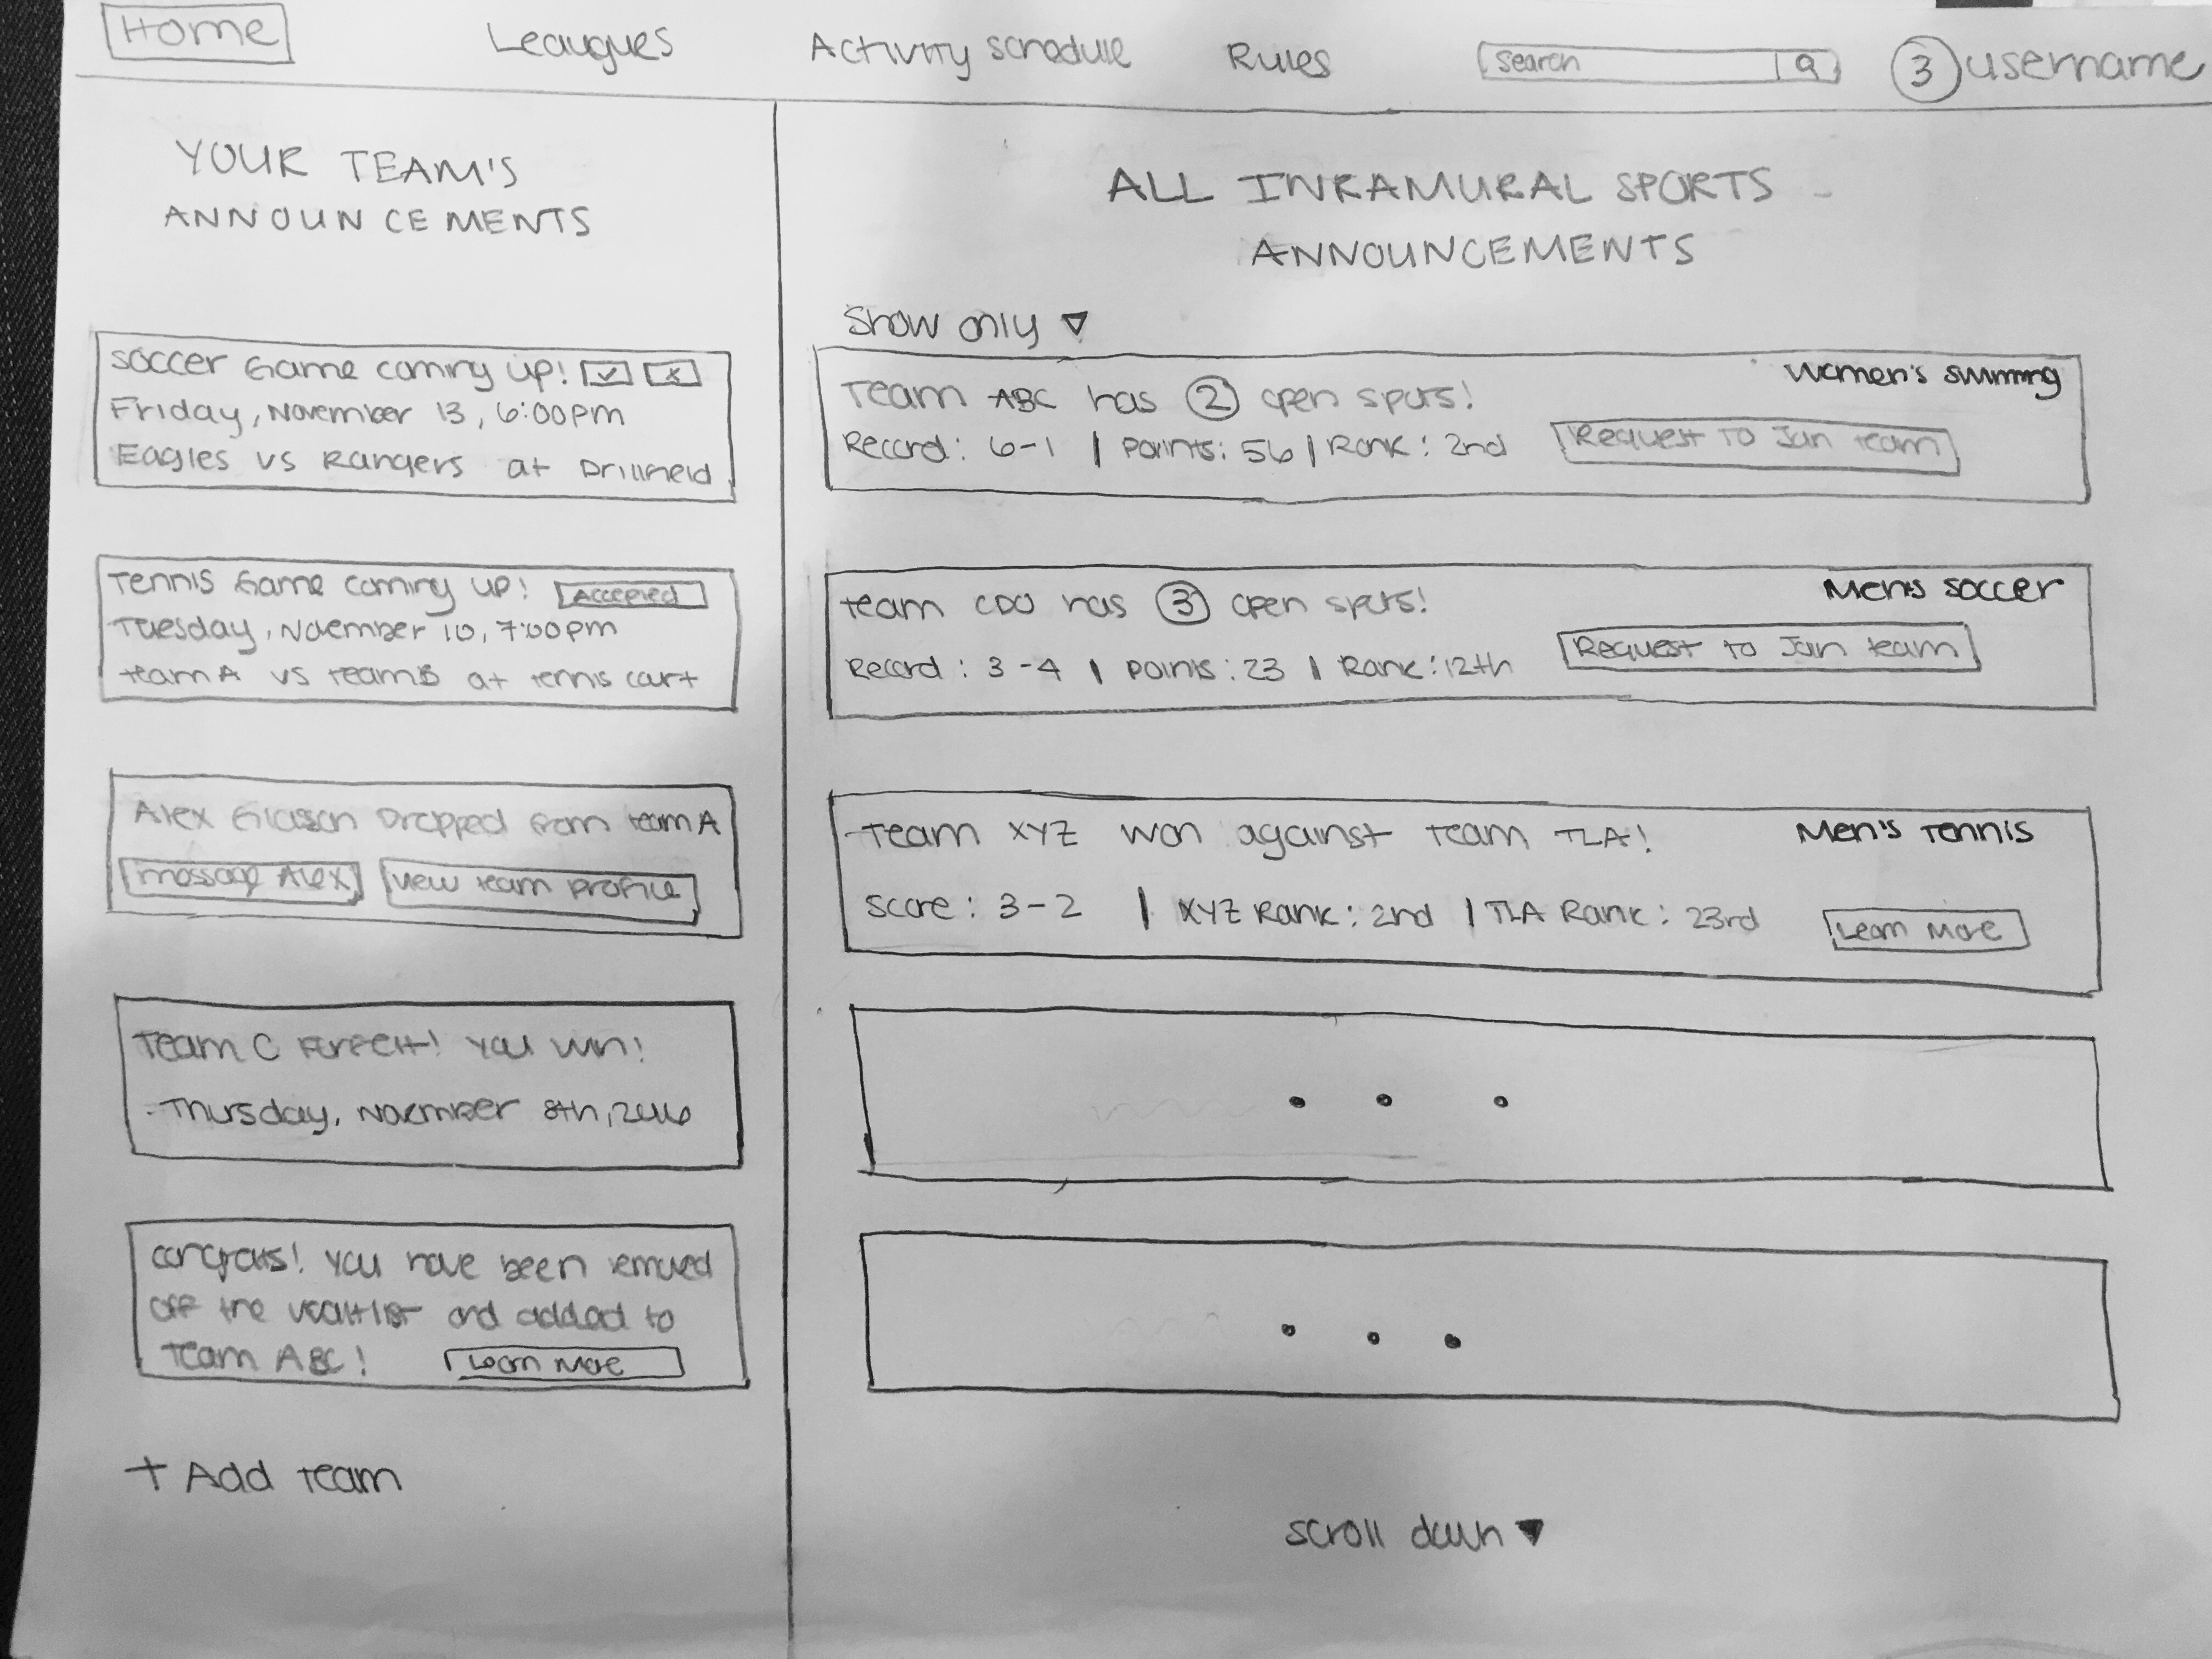 Home
Leaugues
Activity schedule
Rules
search
3 username
YOUR TEAM'S
ANNOUNCEMENTS
Soccer Game coming up!
Friday, November 13, 6:00pm
Eagles vs Rangers at Drillfield
Tennis Game coming up! Accepted
Tuesday, November 10, 7:00pm
team A vs team B at tennis court
Alex Dropped from team A
message Alex view team profile
Team C Forfeit! You win!
Thursday, November 8th, 2016
congrats! You have been removed
off the waitlist and added to
Team ABC! Learn More
+ Add team
ALL INRAMURAL SPORTS
ANNOUNCEMENTS
Show only ▽
Team ABC has 2 open spots! Women's swimming
Record: 6-1 | Points: 56 | Rank: 2nd Request to Join team
team CDO has 3 open spots! Men's soccer
Record: 3-4 | Points: 23 | Rank: 12th Request to Join team
Team XYZ won against team TLA! Men's Tennis
Score: 3-2 | XYZ Rank: 2nd | TLA Rank: 23rd Learn More
. . .
. . .
scroll down ▼